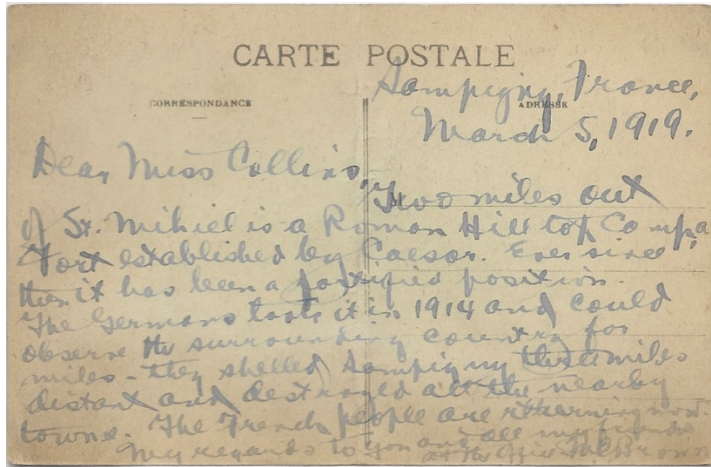 CARTE POSTALE
CORRESPONDANCE
ADRESSE
Sampigny, France,
March 5, 1919.
Dear Miss Collins,
Two miles out
of St. Mihiel is a Roman Hill top Camp, a
Fort established by Caesar. Ever since
then it has been a fortified position.
The Germans took it in 1914 and could
observe the surrounding country for
miles - they shelled Sampigny three miles
distant and destroyed all the nearby
towns. The French people are returning now.
My regards to you and all my friends
at the